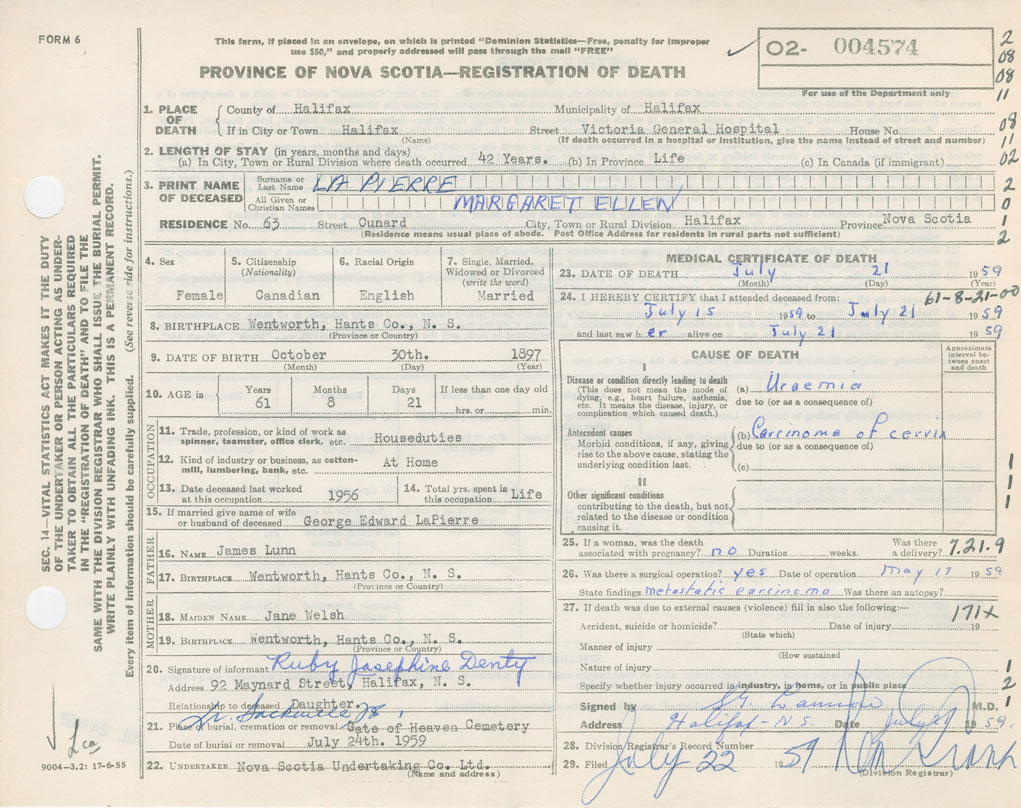 FORM 6
This form, if placed in an envelope, on which is printed "Dominion Statistics—Free, penalty for improper
use $50," and properly addressed will pass through the mail "FREE"
02- 004574
For use of the Department only
PROVINCE OF NOVA SCOTIA—REGISTRATION OF DEATH
2
08
08
11
08
11
02
2
0
1
2
1. PLACE OF DEATH County of Halifax Municipality of Halifax
If in City or Town Halifax Street Victoria General Hospital House No.
(Name) (If death occurred in a hospital or institution, give the name instead of street and number)
2. LENGTH OF STAY (in years, months and days)
(a) In City, Town or Rural Division where death occurred 42 Years. (b) In Province Life (c) In Canada (if immigrant)
3. PRINT NAME OF DECEASED Surname or Last Name LA PIERRE
All Given or Christian Names MARGARET ELLEN
RESIDENCE No. 63 Street Cunard City, Town or Rural Division Halifax Province Nova Scotia
(Residence means usual place of abode. Post Office Address for residents in rural parts not sufficient)
4. Sex Female
5. Citizenship (Nationality) Canadian
6. Racial Origin English
7. Single, Married, Widowed or Divorced (write the word) Married
8. BIRTHPLACE Wentworth, Hants Co., N. S.
(Province or Country)
9. DATE OF BIRTH October 30th. 1897
(Month) (Day) (Year)
10. AGE in Years 61 Months 8 Days 21 If less than one day old hrs. or min.
OCCUPATION
11. Trade, profession, or kind of work as spinner, teamster, office clerk, etc. Houseduties
12. Kind of industry or business, as cotton-mill, lumbering, bank, etc. At Home
13. Date deceased last worked at this occupation 1956
14. Total yrs. spent in this occupation Life
15. If married give name of wife or husband of deceased George Edward LaPierre
FATHER
16. NAME James Lunn
17. BIRTHPLACE Wentworth, Hants Co., N. S.
(Province or Country)
MOTHER
18. MAIDEN NAME Jane Welsh
19. BIRTHPLACE Wentworth, Hants Co., N. S.
(Province or Country)
20. Signature of informant Ruby Josephine Denty
Address 92 Maynard Street, Halifax, N. S.
Relationship to deceased Daughter.
21. Place of burial, cremation or removal Gate of Heaven Cemetery
Date of burial or removal July 24th. 1959
22. UNDERTAKER Nova Scotia Undertaking Co. Ltd.
(Name and address)
MEDICAL CERTIFICATE OF DEATH
23. DATE OF DEATH July 21 1959
(Month) (Day) (Year)
24. I HEREBY CERTIFY that I attended deceased from: 61-8-21-00
July 15 1959 to July 21 1959
and last saw h er alive on July 21 1959
CAUSE OF DEATH
Approximate interval between onset and death
I
Disease or condition directly leading to death
(This does not mean the mode of dying, e.g., heart failure, asthenia, etc. It means the disease, injury, or complication which caused death.)
(a) Uraemia
due to (or as a consequence of)
Antecedent causes
Morbid conditions, if any, giving rise to the above cause, stating the underlying condition last.
(b) Carcinoma of cervix
due to (or as a consequence of)
(c)
II
Other significant conditions
contributing to the death, but not related to the disease or condition causing it.
1
1
1
25. If a woman, was the death associated with pregnancy? no Duration weeks. Was there a delivery? 7.21.9
26. Was there a surgical operation? yes Date of operation May 17 1959
State findings metastatic carcinoma Was there an autopsy?
27. If death was due to external causes (violence) fill in also the following:— 171X
Accident, suicide or homicide? Date of injury 19
(State which)
Manner of injury
(How sustained
Nature of injury 1
Specify whether injury occurred in industry, in home, or in public place 2
Signed by M.D. 1
Address Halifax - N.S. Date July 21 1959.
28. Division Registrar's Record Number
29. Filed July 22 1959
(Division Registrar)
SEC. 14—VITAL STATISTICS ACT MAKES IT THE DUTY
OF THE UNDERTAKER OR PERSON ACTING AS UNDER-
TAKER TO OBTAIN ALL THE PARTICULARS REQUIRED
IN THE "REGISTRATION OF DEATH" AND TO FILE THE
SAME WITH THE DIVISION REGISTRAR WHO SHALL ISSUE THE BURIAL PERMIT.
WRITE PLAINLY WITH UNFADING INK. THIS IS A PERMANENT RECORD.
Every item of information should be carefully supplied. (See reverse side for instructions.)
9004-3.2: 17-6-55